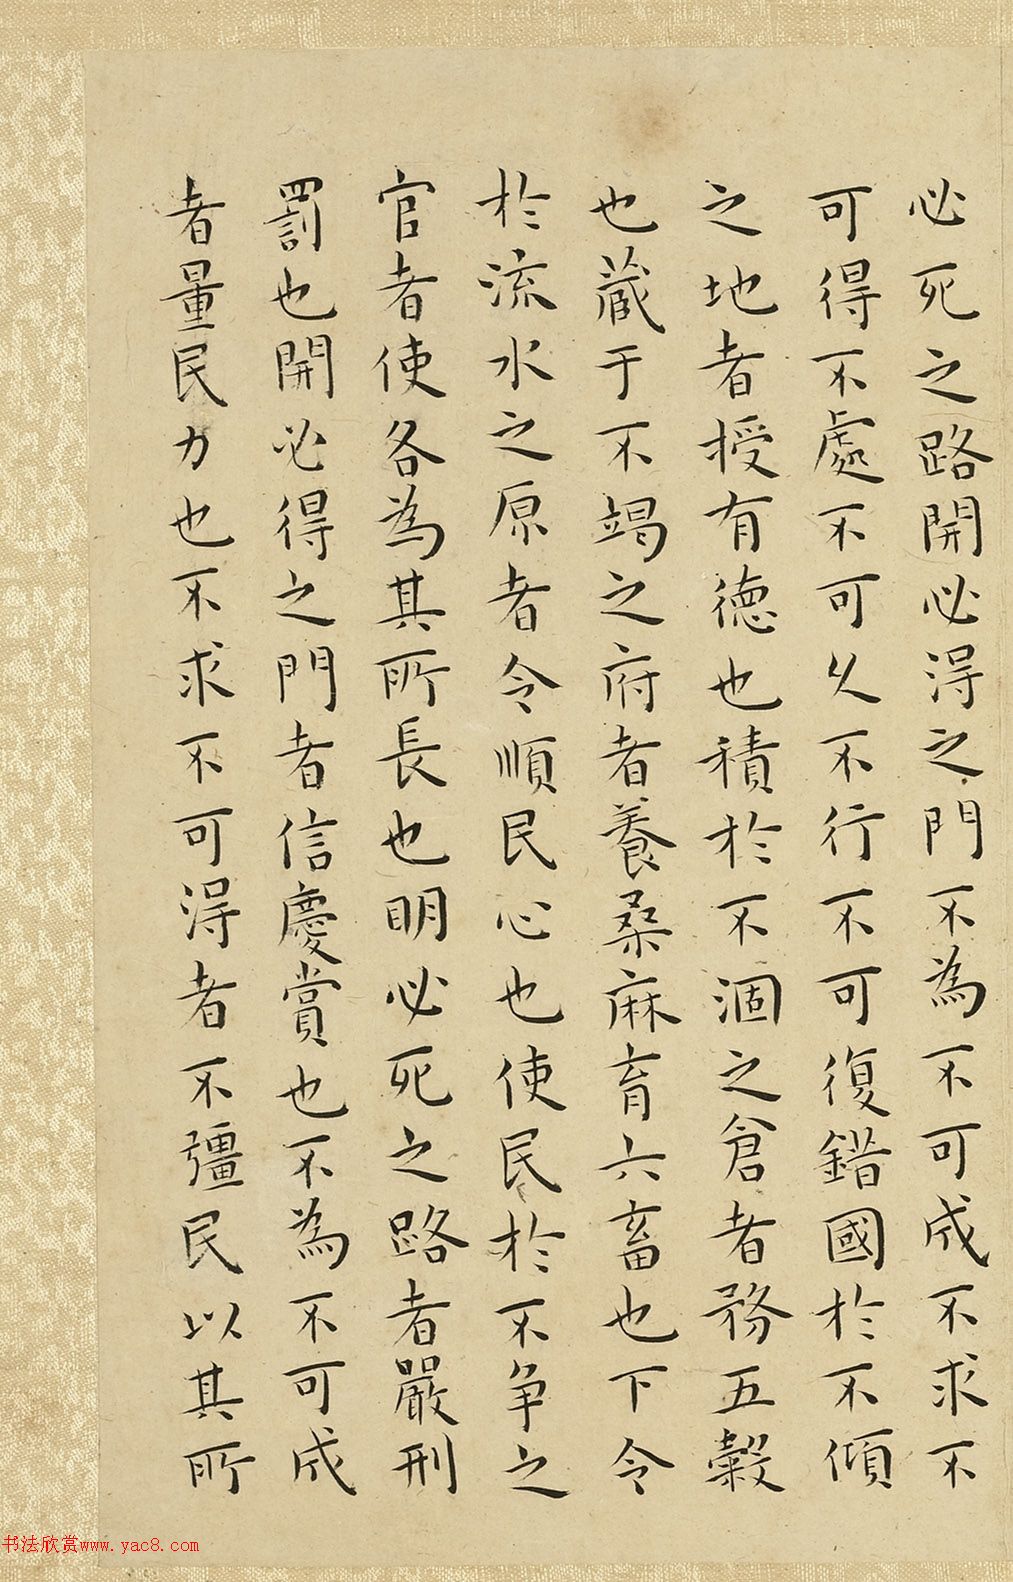 必死之路開必得之門不為不可成不求不
可得不處不可久不行不可復錯國於不傾
之地者授有德也積於不涸之倉者務五穀
也藏于不竭之府者養桑麻育六畜也下令
於流水之原者令順民心也使民於不争之
官者使各為其所長也明必死之路者嚴刑
罰也開必得之門者信慶賞也不為不可成
者量民力也不求不可得者不彊民以其所
书法欣赏www.yac8.com